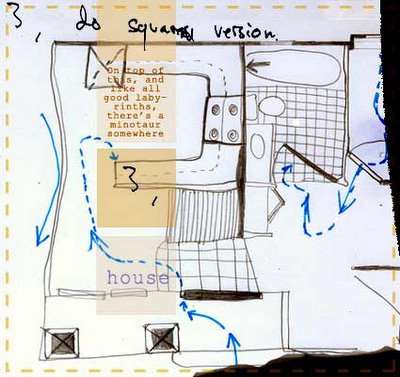 3, do square version.
On top of
this, and
like all
good laby-
rinths,
there's a
minotaur
somewhere
3,
house